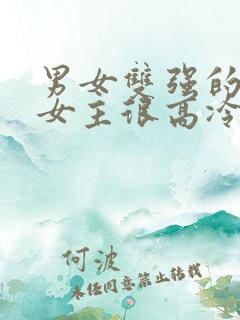 男女雙强的
女主很高冷
何波
未经同意禁止转载